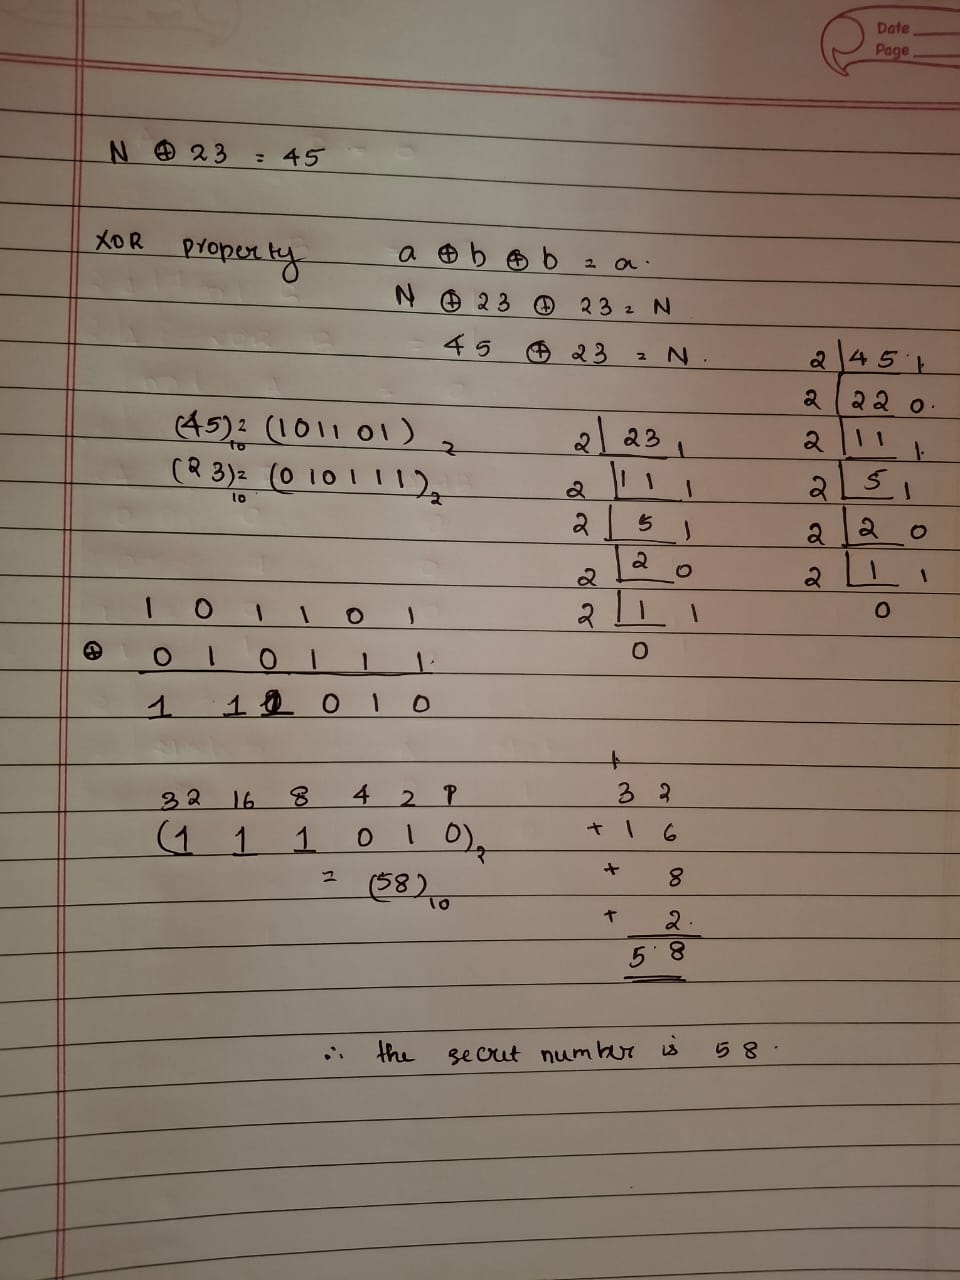 Date
Page
N ⊕ 23 = 45
XOR property a ⊕ b ⊕ b = a.
N ⊕ 23 ⊕ 23 = N
45 ⊕ 23 = N.
(45)₁₀ = (101101)₂
(23)₁₀ = (010111)₂
2 | 23 1
2 | 11 1
2 | 5 1
2 | 2 0
2 | 1 1
0
2 | 45 1
2 | 22 0
2 | 11 1
2 | 5 1
2 | 2 0
2 | 1 1
0
1 0 1 1 0 1
⊕ 0 1 0 1 1 1
1 1 1 0 1 0
32 16 8 4 2 1
(1 1 1 0 1 0)₂
= (58)₁₀
1
3 2
+ 1 6
+ 8
+ 2
5 8
∴ the secret number is 58.